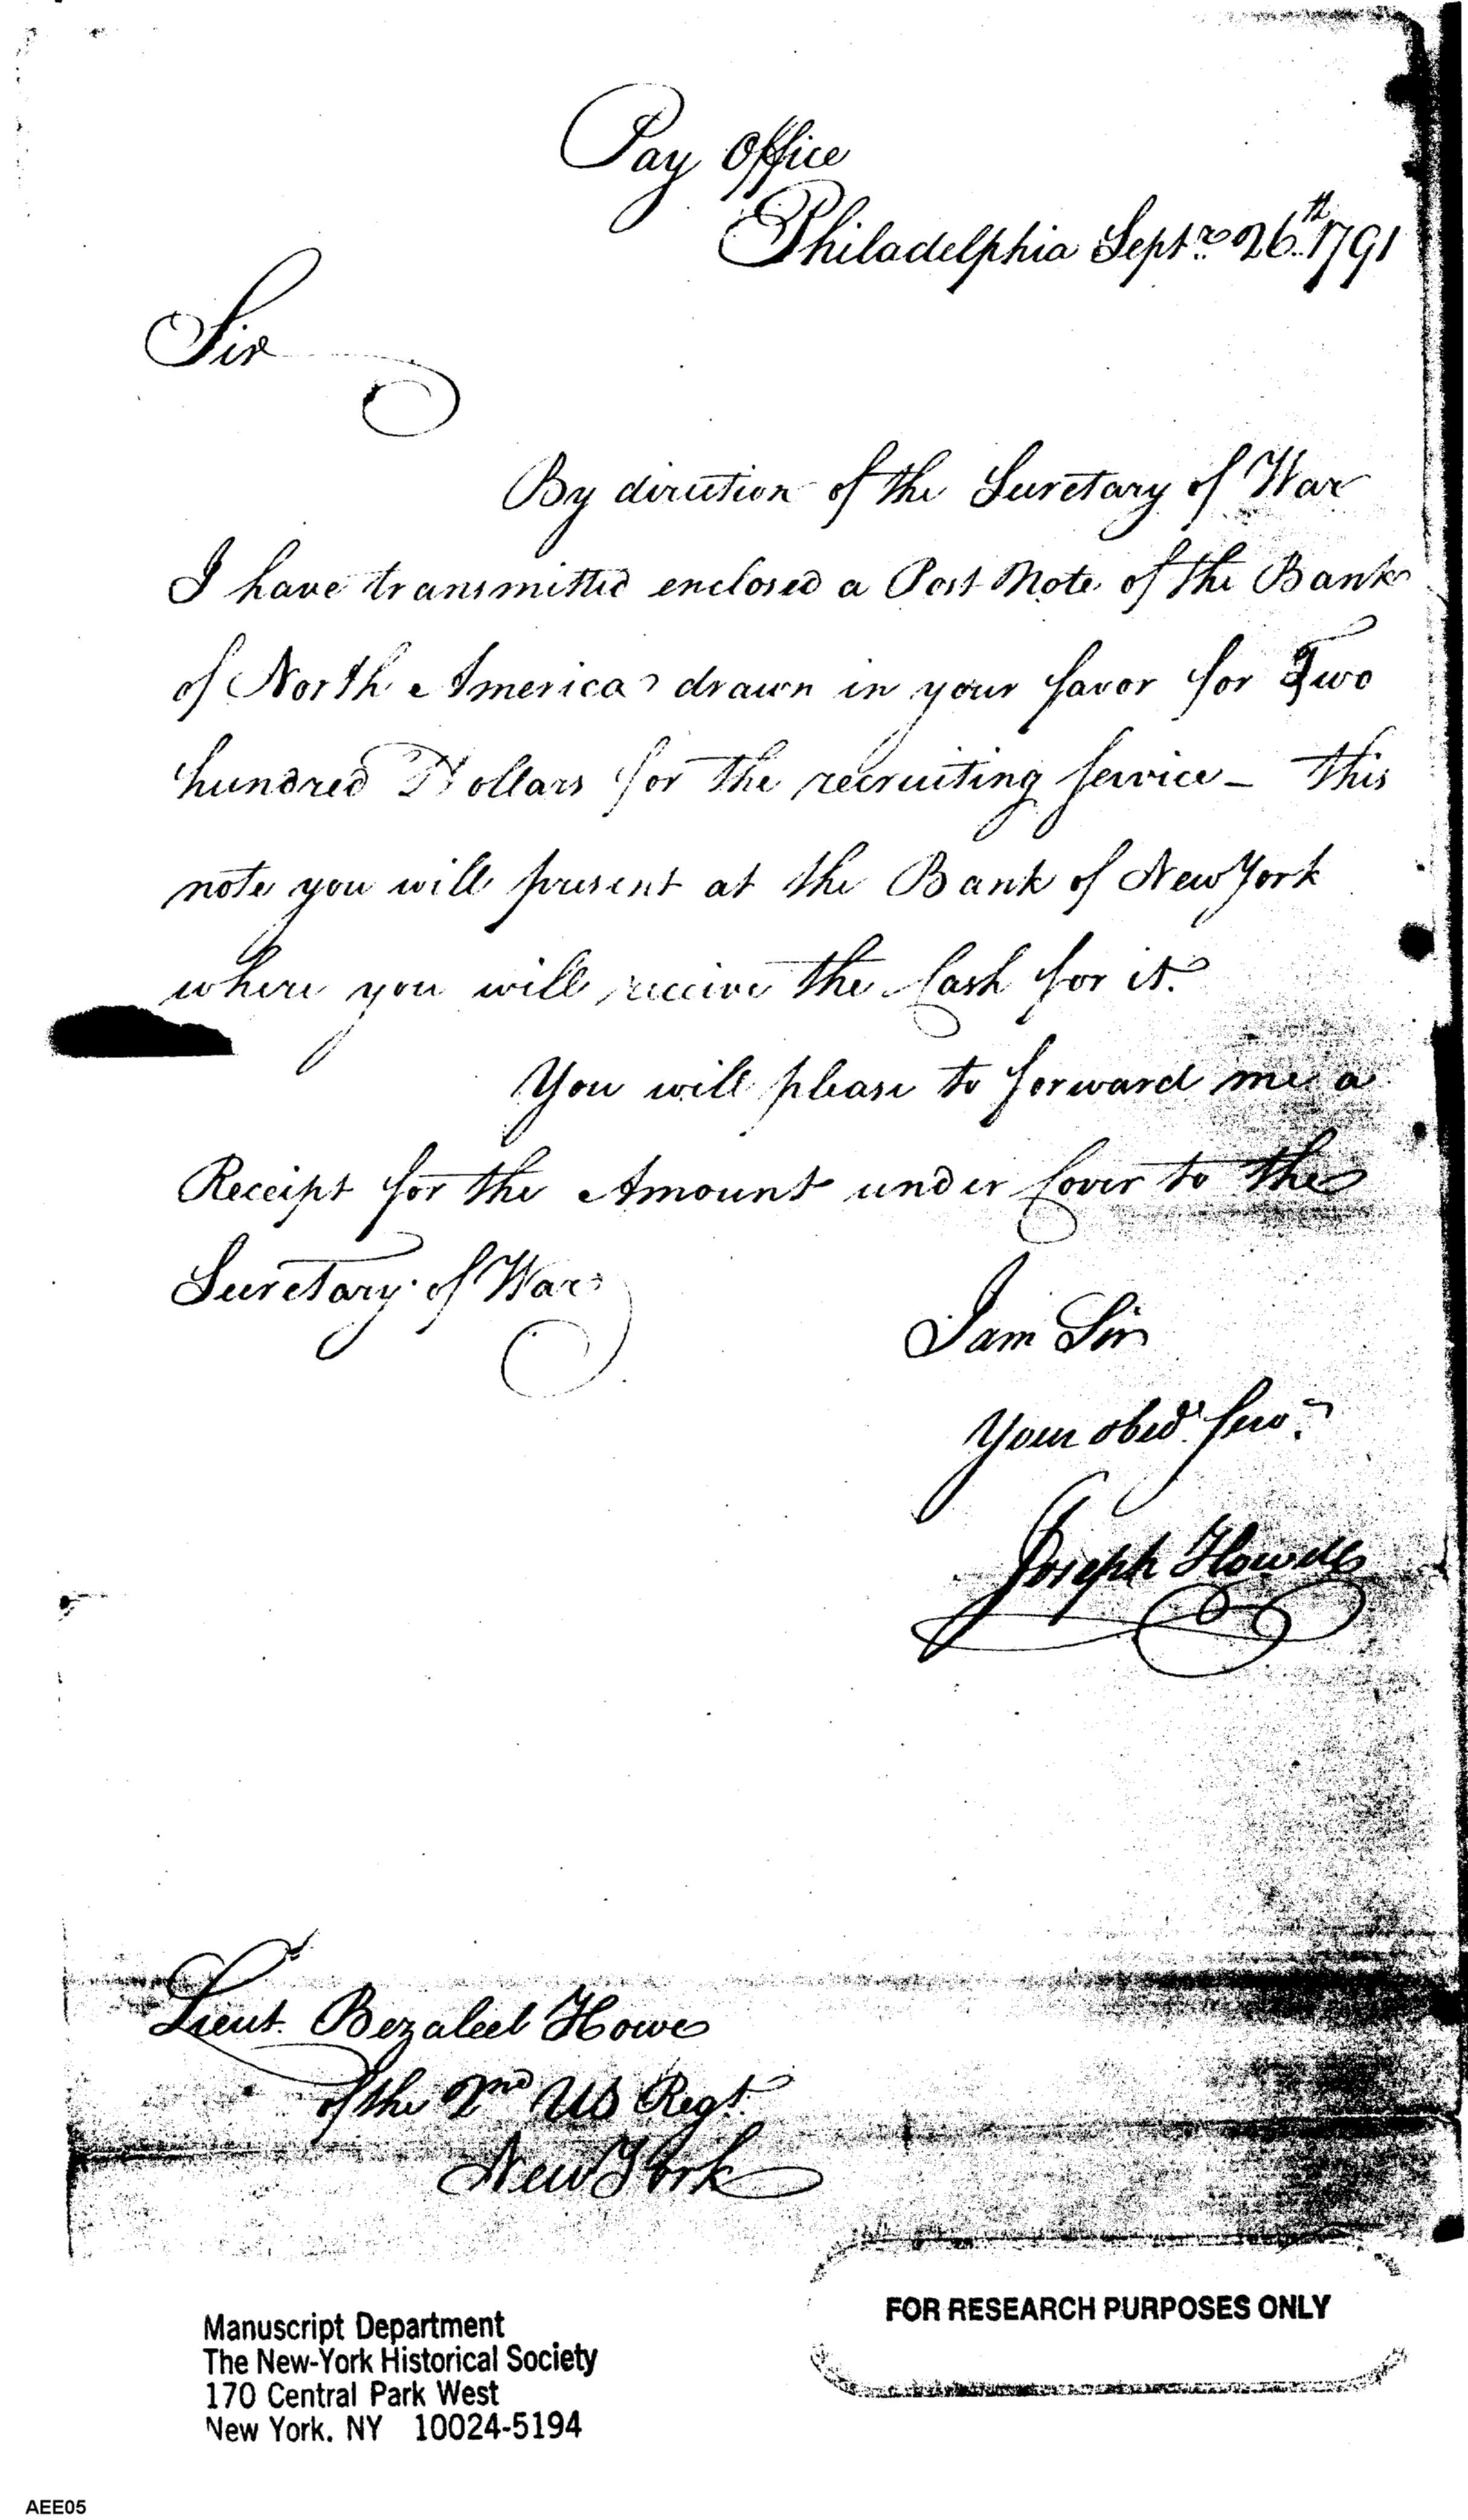 Pay Office
Philadelphia Septr. 26th. 1791
Sir
By direction of the Secretary of War
I have transmitted enclosed a Post Note of the Bank
of North America drawn in your favor for Two
hundred Dollars for the recruiting Service – this
note you will present at the Bank of New York
where you will receive the Cash for it.
You will please to forward me a
Receipt for the Amount under Cover to the
Secretary of War
I am Sir
Your obedt. Servt.
Joseph Howell
Lieut. Bezaleel Howe
of the 2nd US Regt.
New York
FOR RESEARCH PURPOSES ONLY
Manuscript Department
The New-York Historical Society
170 Central Park West
New York, NY 10024-5194
AEE05